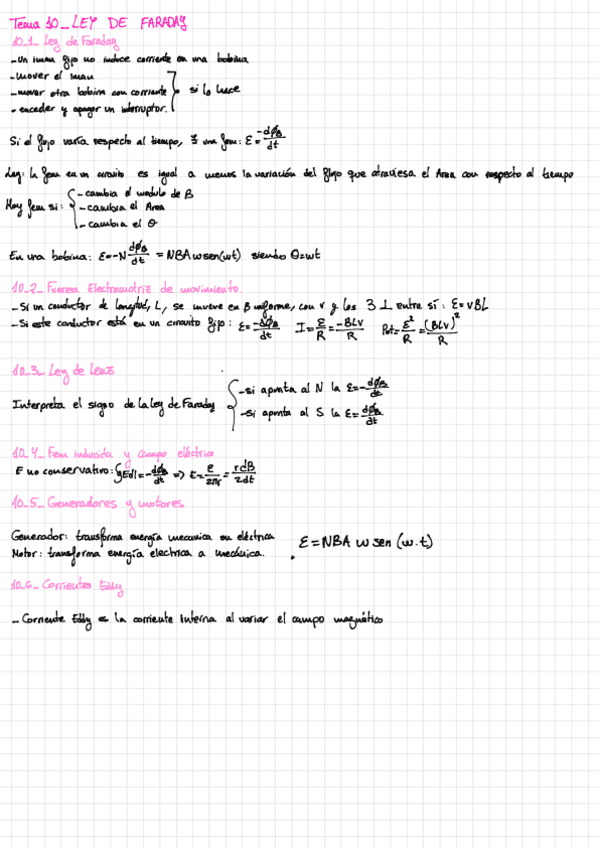 Tema 10_LEY DE FARADAY
10_1_ Ley de Faraday
-Un iman fijo no induce corriente en una bobina
-mover el iman
-mover otra bobina con corriente
- encender y apagar un interruptor.
si lo hace
Si el flujo varía respecto al tiempo, ∃ una fem: ε = -dϕB/dt
Ley: la fem en un circuito es igual a menos la variación del flujo que atraviesa el Area con respecto al tiempo
Hay fem si:
- cambia el modulo de B
- cambia el Area
- cambia el θ
En una bobina: ε=-N dϕB/dt = NBA w sen(wt) siendo θ=wt
10_2_ Fuerza Electromotriz de movimiento.
-Si un conductor de longitud, L, se mueve en B uniforme, con v y los 3 ⊥ entre sí: ε=vBL
-Si este conductor está en un circuito fijo: ε=-dϕB/dt I=ε/R=-BLv/R Pot=ε²/R=(BLv)²/R
10_3_ Ley de Lenz
Interpreta el signo de la ley de Faraday
-si apunta al N la ε=-dϕB/dt
-si apunta al S la ε=dϕB/dt
10_4_ Fem inducida y campo eléctrico
E no conservativo: ∮Edl=-dϕB/dt => E=e/2πr=rdB/2dt
10_5_ Generadores y motores
Generador: transforma energía mecanica en eléctrica
Motor: transforma energía electrica a mecánica.
ε=NBA w sen (w.t)
10_6_ Corrientes Eddy
- Corriente Eddy es la corriente interna al variar el campo magnético